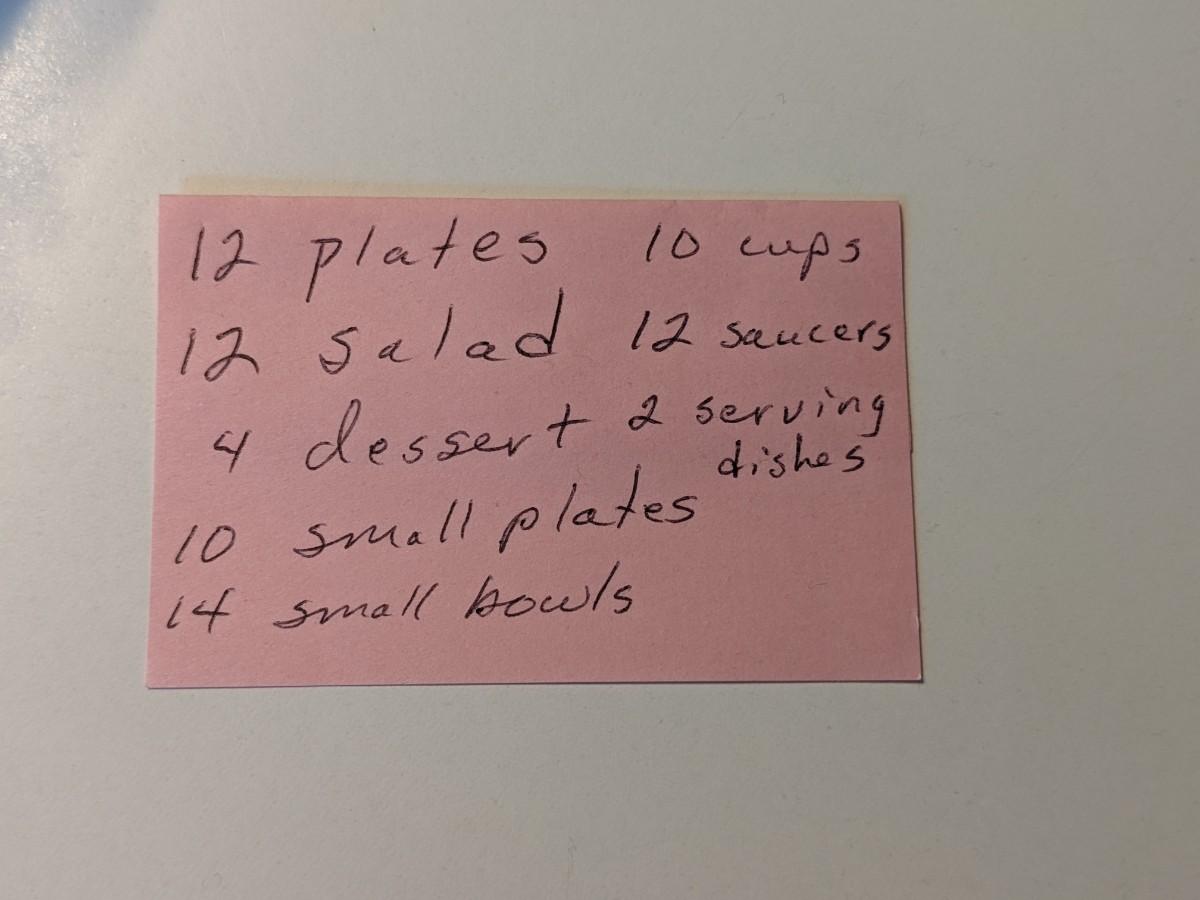 12 plates
12 salad
4 dessert
10 small plates
14 small bowls
10 cups
12 saucers
2 serving
dishes